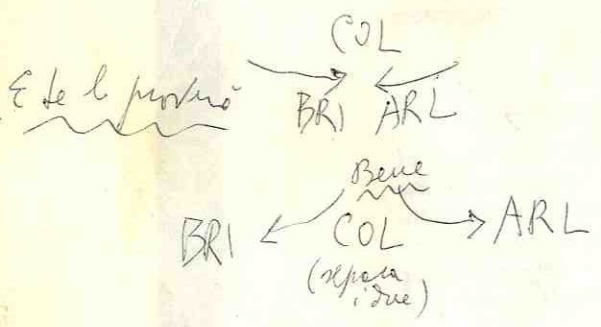 COL
E te lo proverò BRI ARL
Bene
BRI COL ARL
(separa
i due)